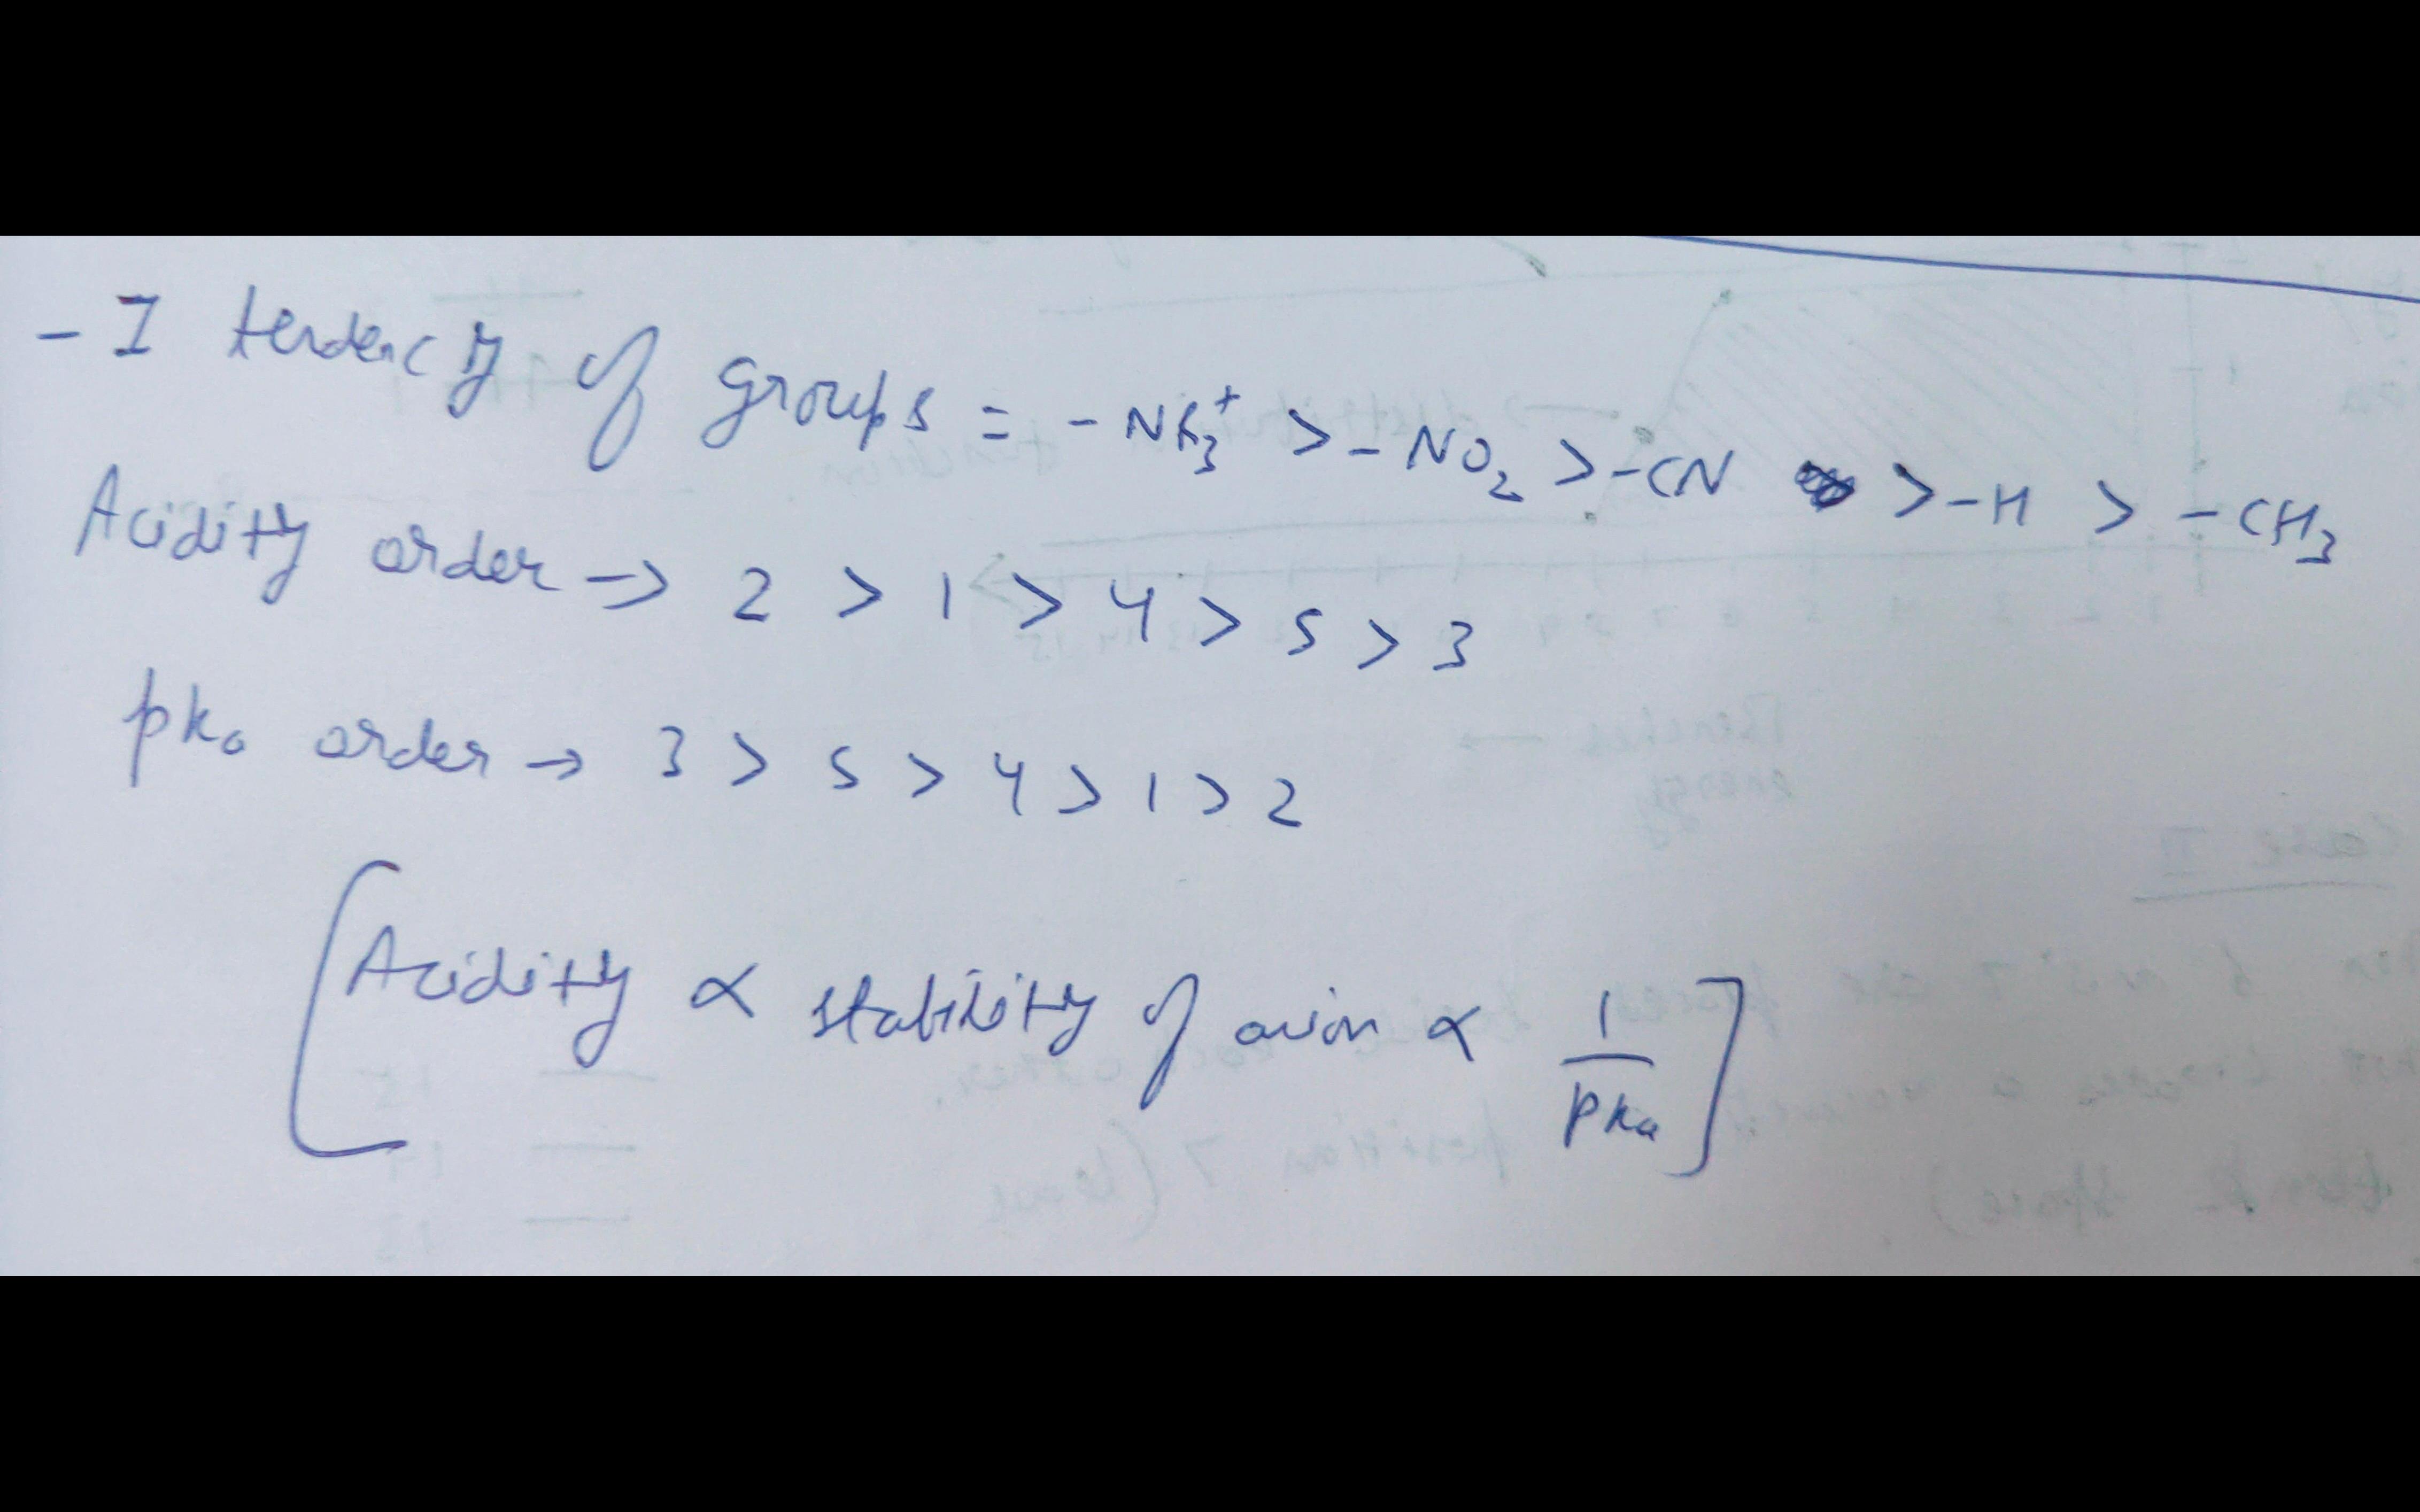 - I tendency of groups = - NR₃⁺ > - NO₂ > - CN > - H > - CH₃
Acidity order → 2 > 1 > 4 > 5 > 3
pka order → 3 > 5 > 4 > 1 > 2
[Acidity ∝ stability of anion ∝ 1/pka]